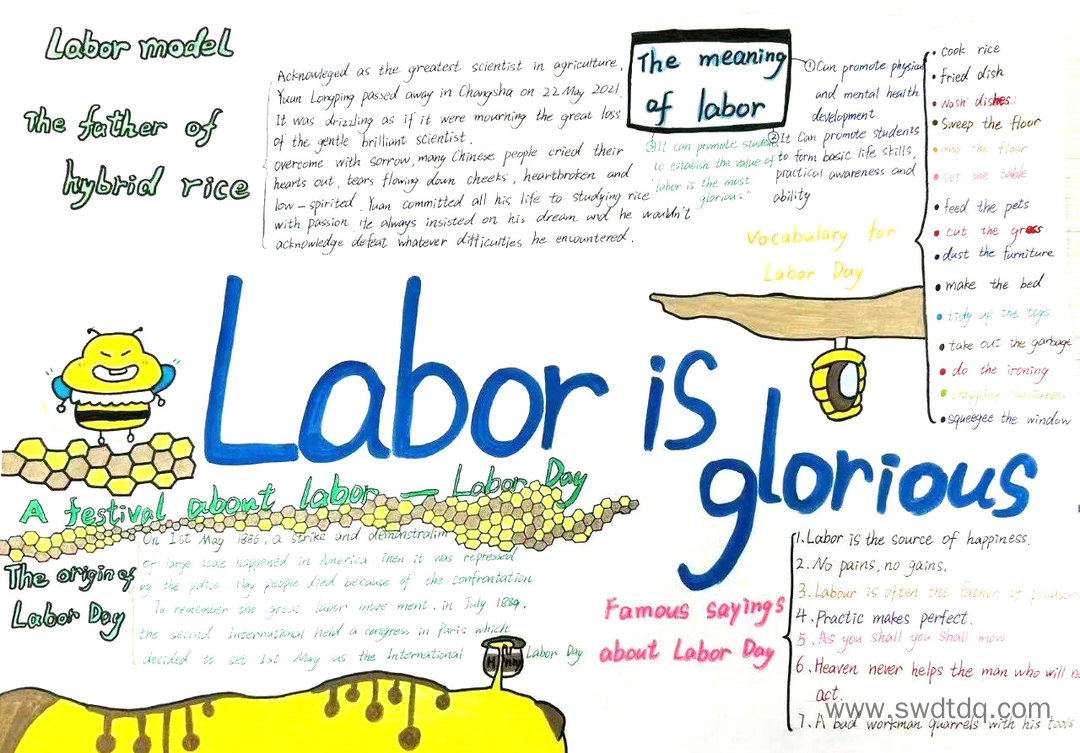 Labor model
The father of
hybrid rice
Acknowleged as the greatest scientist in agriculture,
Yuan Longping passed away in Changsha on 22 May 2021.
It was drizzling as if it were mourning the great loss
of the gentle brilliant scientist.
overcome with sorrow, many Chinese people cried their
hearts out, tears flowing down cheeks, heartbroken and
low-spirited. Yuan committed all his life to studying rice
with passion. He always insisted on his dream and he wouldn't
acknowledge defeat whatever difficulties he encountered.
The meaning
of labor
①Can promote physical
and mental health
development
②It Can promote students
to form basic life skills,
practical awareness and
ability
③It can promote students
to establish the value of
"labor is the most
glorious"
Vocabulary for
Labor Day
• cook rice
• fried dish
• wash dishes
• Sweep the floor
• mop the floor
• set the table
• feed the pets
• cut the grass
• dust the furniture
• make the bed
• tidy up the toys
• take out the garbage
• do the ironing
• squeegee the window
Labor is
glorious
A festival about labor — Labor Day
The origin of
Labor Day
On 1st May 1886, a strike and
of large scale happened in America. Then it was repressed
by the police. May people died because of the confrontation
To remember the great labor move ment, in July 1889,
the second International held a congress in Paris which
decided to set 1st May us the International Labor Day
Famous sayings
about Labor Day
1. Labor is the source of happiness.
2. No pains, no gains.
3. Labour is often the father of
4. Practic makes perfect.
5. As you shall you shall mow
6. Heaven never helps the man who will no
act.
7. A bad workman quarrels with his tools
www.swdtdq.com